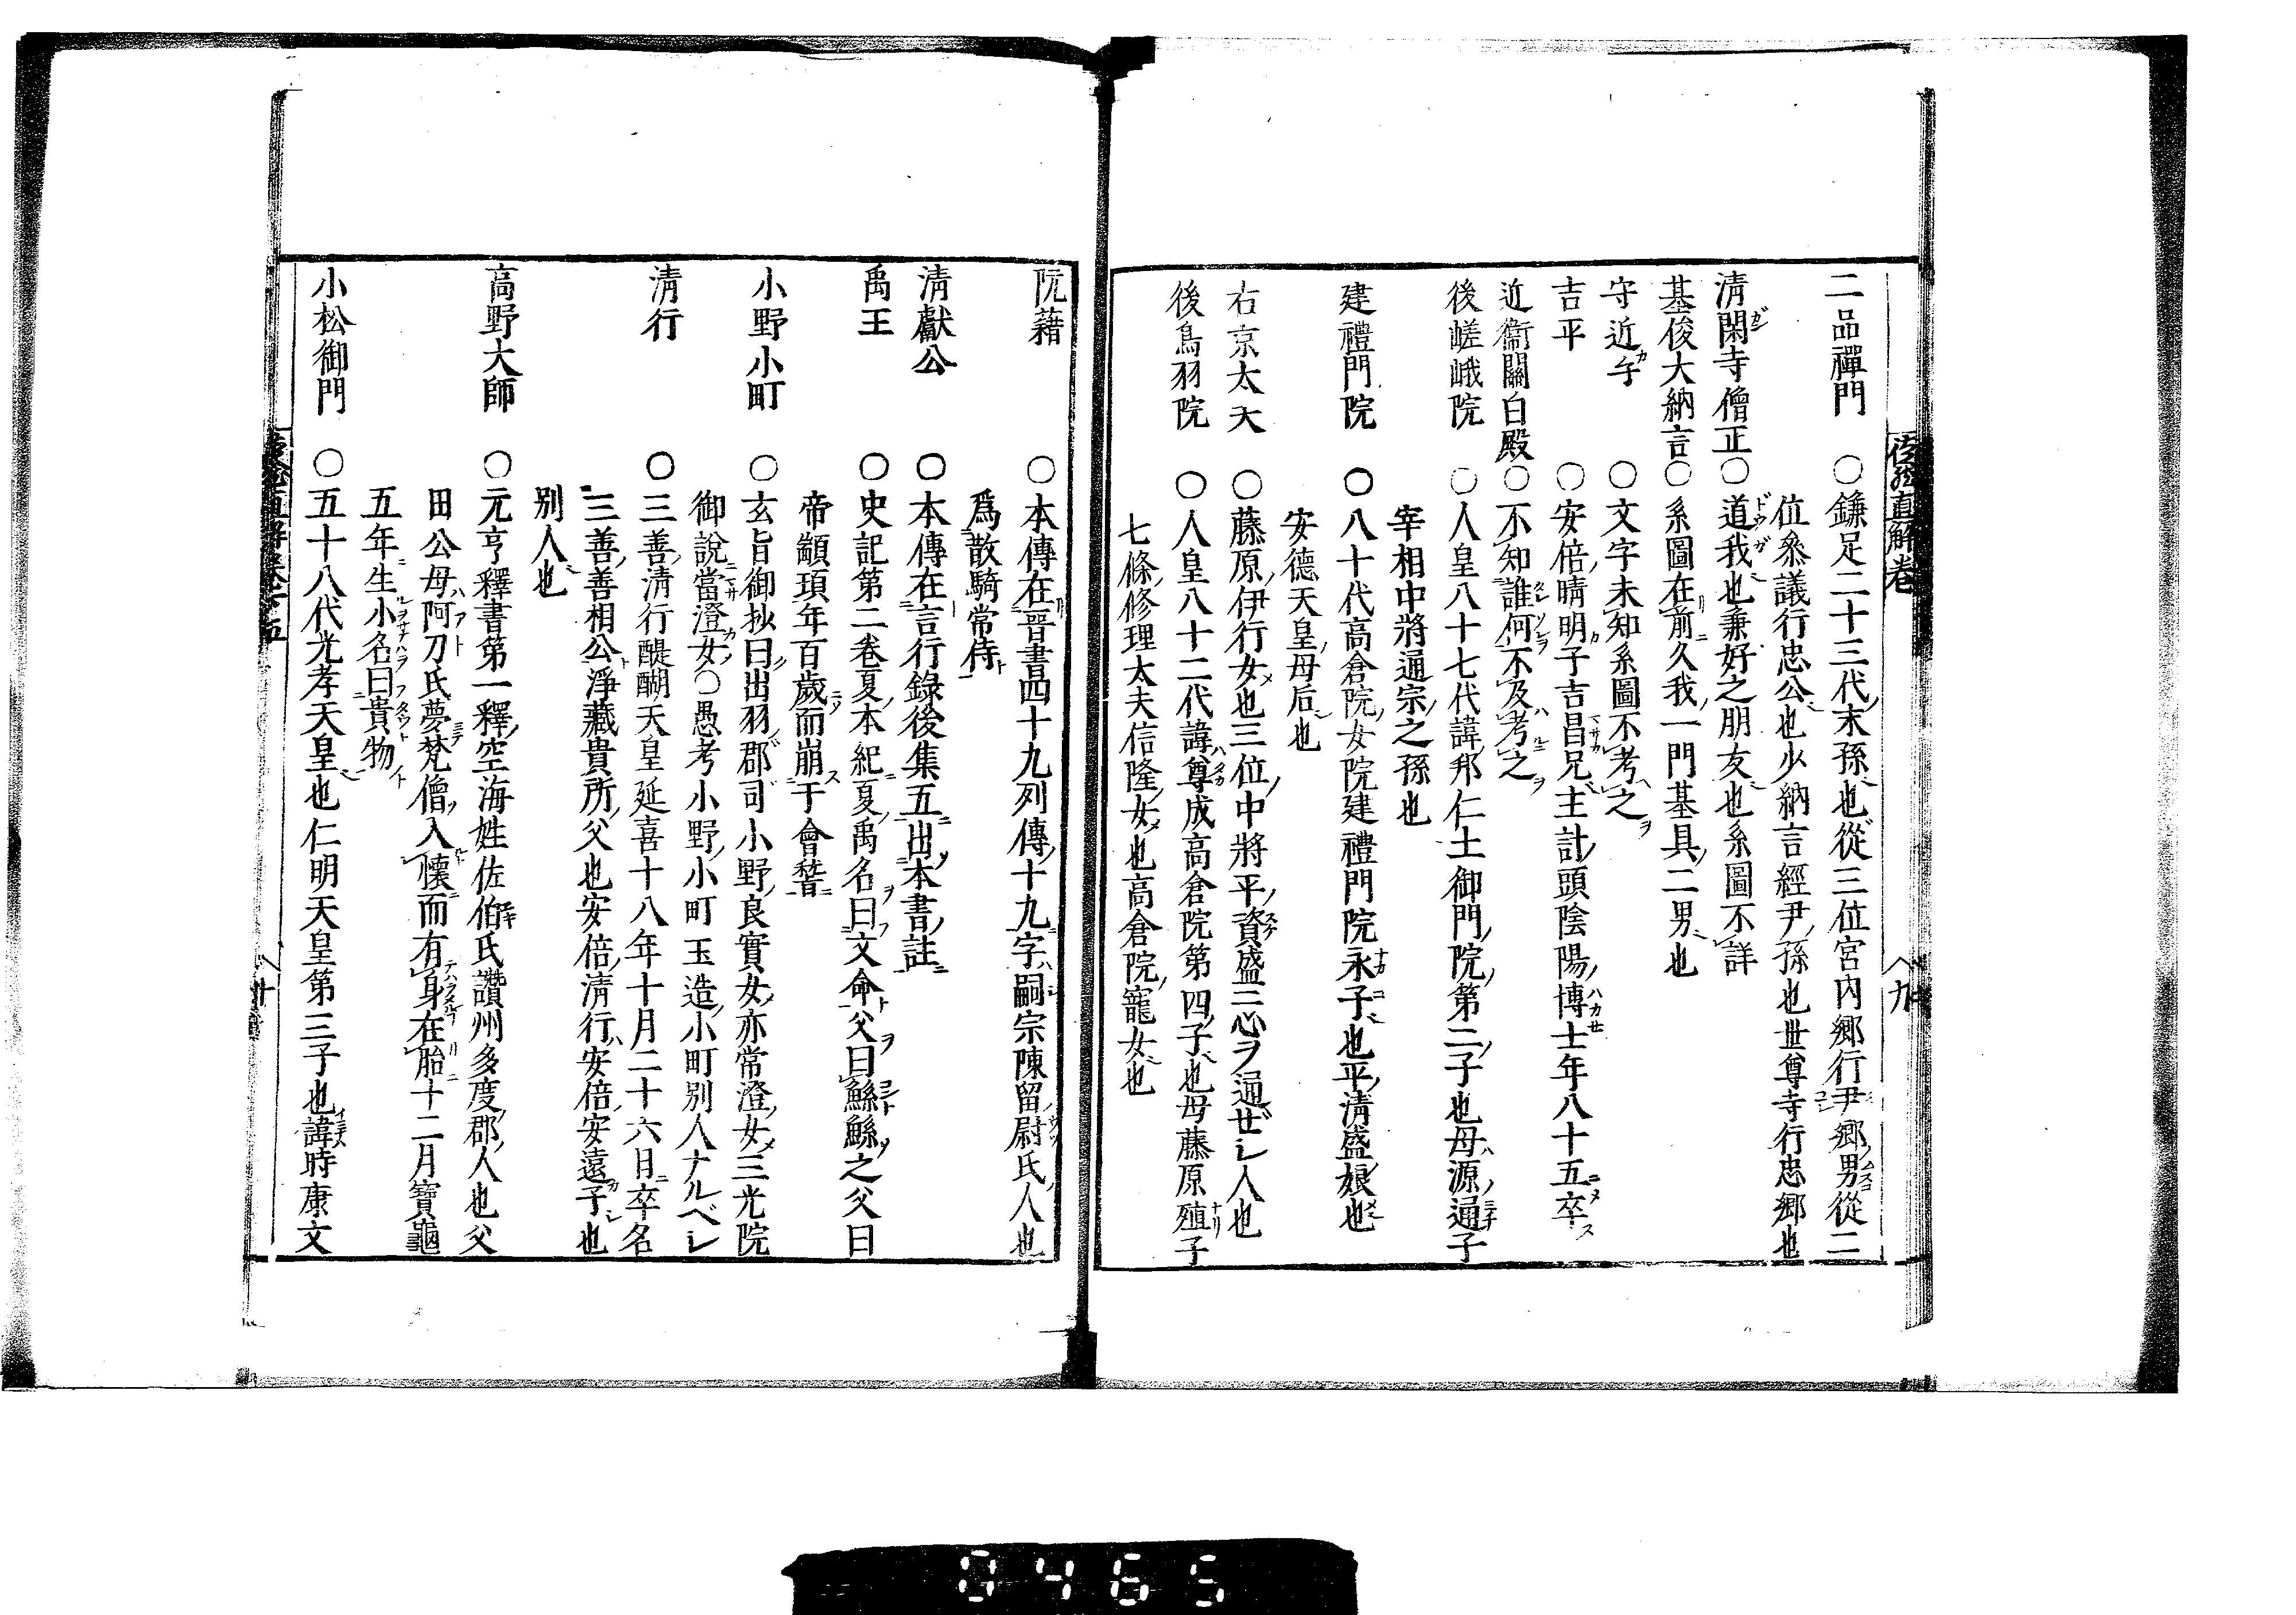 二品禪門 ○鎌足二十三代末孫也從三位宮内郷行尹郷男從二
位參議行忠公也少納言經尹孫也世尊寺行忠郷也
清閑寺僧正○道我也兼好之朋友也系圖不詳
基俊大納言○系圖在前久我一門基具二男也
守近子 ○文字未知系圖不考之
吉平 ○安倍晴明子吉昌兄主計頭陰陽博士年八十五卒
近衞關白殿○不知誰何不及考之
後嵯峨院 ○人皇八十七代諱邦仁土御門院第二子也母源通子
宰相中將通宗之孫也
建禮門院 ○八十代高倉院女院建禮門院永子也平清盛娘也
安德天皇母后也
右京太夫 ○藤原伊行女也三位中將平資盛ニ心ヲ通ぜし人也
後鳥羽院 ○人皇八十二代諱尊成高倉院第四子也母藤原殖子
七條修理太夫信隆女也高倉院寵女也
阮藉 ○本傳在晉書四十九列傳十九字嗣宗陳留尉氏人也
爲散騎常侍
清獻公 ○本傳在言行錄後集五出本書註
禹王 ○史記第二卷夏本紀夏禹名曰文命父曰鯀鯀之父曰
帝顓頊年百歲而崩于會稽
小野小町 ○玄旨御抄曰出羽郡司小野良實女亦常澄女三光院
御說當澄女○愚考小野小町玉造小町別人ナルベし
清行 ○三善清行醍醐天皇延喜十八年十月二十六日卒名
三善善相公淨藏貴所父也安倍清行安倍安遠子也
別人也
高野大師 ○元亨釋書第一釋空海姓佐伯氏讚州多度郡人也父
田公母阿刀氏夢梵僧入懷而有身在胎十二月寶龜
五年生小名曰貴物
小松御門 ○五十八代光孝天皇也仁明天皇第三子也諱時康文